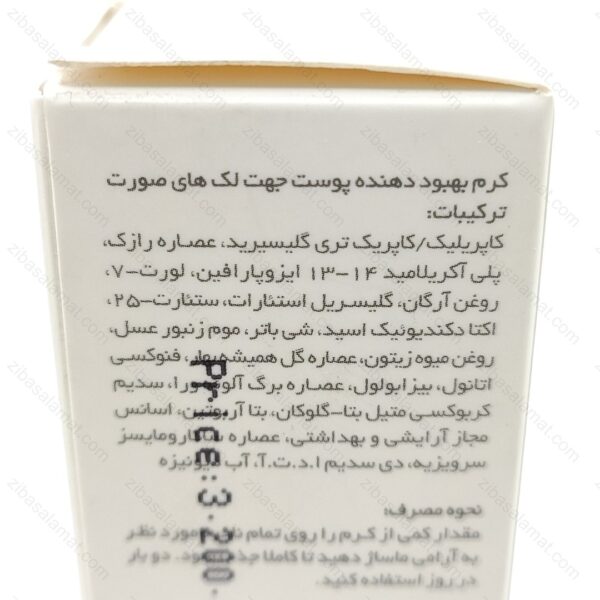 کرم بهبود دهنده پوست جهت لک های صورت
ترکیبات:
کاپریلیک/کاپریک تری گلیسیرید، عصاره رازک،
پلی آکریلامید ۱۴-۱۳ ایزوپارافین، لورت-۷،
روغن آرگان، گلیسریل استئارات، ستئارت-۲۵،
اکتا دکندیوئیک اسید، شی باتر، موم زنبور عسل،
روغن میوه زیتون، عصاره گل همیشه بهار، فنوکسی
اتانول، بیزابولول، عصاره برگ آلوئه ورا، سدیم
کربوکسی متیل بتا-گلوکان، بتا آربوتین، اسانس
مجاز آرایشی و بهداشتی، عصاره ساکارومایسز
سرویزیه، دی سدیم ا.د.ت.آ. آب دیونیزه
نحوه مصرف:
مقدار کمی از کرم را روی تمام مورد نظر
به آرامی ماساژ دهید تا کاملا جذب شود. دو بار
در روز استفاده کنید.
Price:3.200.
zibasalamat.com